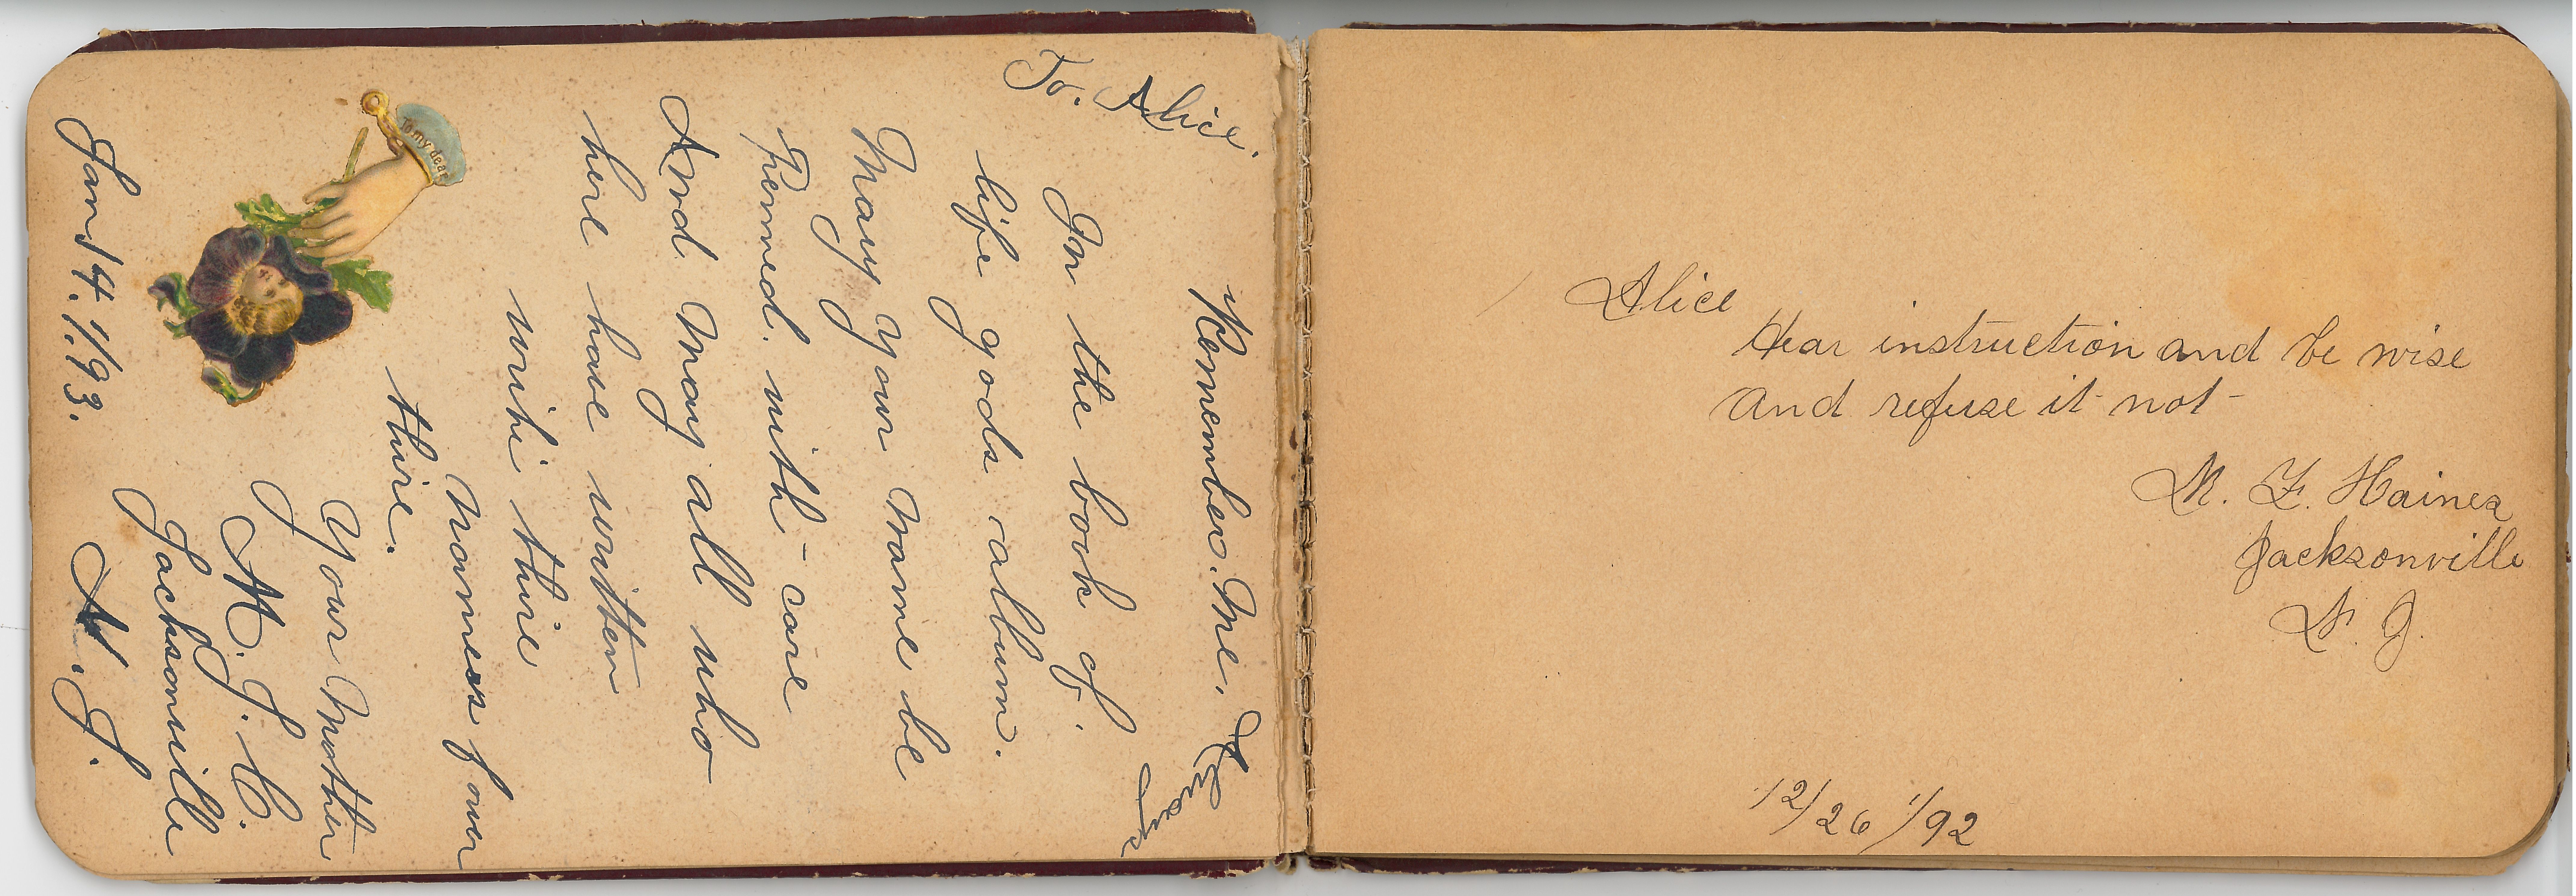 To. Alice.
Remember. Me.
In the book of
life gods album.
May your Name be
Penned. with-care
And May all who
here have written
write thire
Names fover
thire.
Your Mother
M. J. C.
Jacksonville
N. J.
Jan 14. 1/93.
To my dear
Alice
Hear instruction and be wise
and refuse it not-
M. F. Haines
Jacksonville
N. J.
12/26 1/92